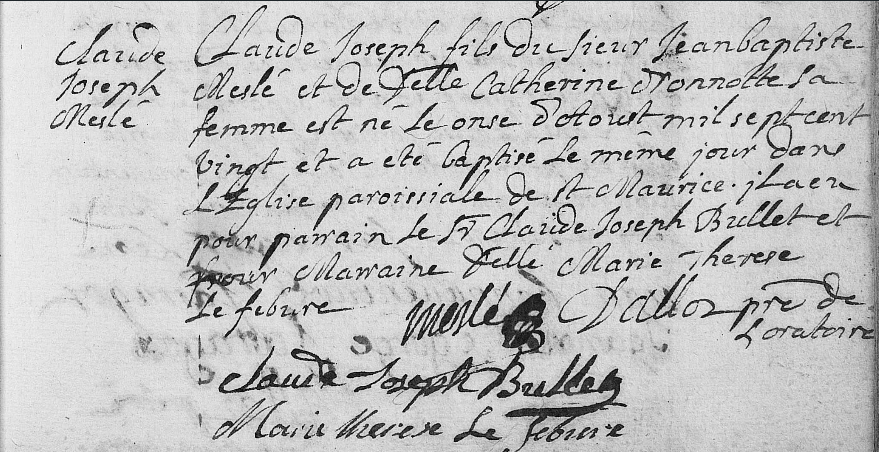 Claude
Joseph
Meslé
Claude Joseph fils du sieur Jeanbaptiste
Meslé et de Delle Catherine sa
femme est né le onse d'Aoust mil sept cent
vingt et a eté baptisé le même jour dans
L'Eglise paroissiale de st Maurice. jl a eu
pour parrain le Sr Claude Joseph Bullet et
pour Marraine Delle Marie Therese
Le febure
Meslé Dalloz pre de
Loratoire
Claude Joseph Bullet
Marie therese Le febure